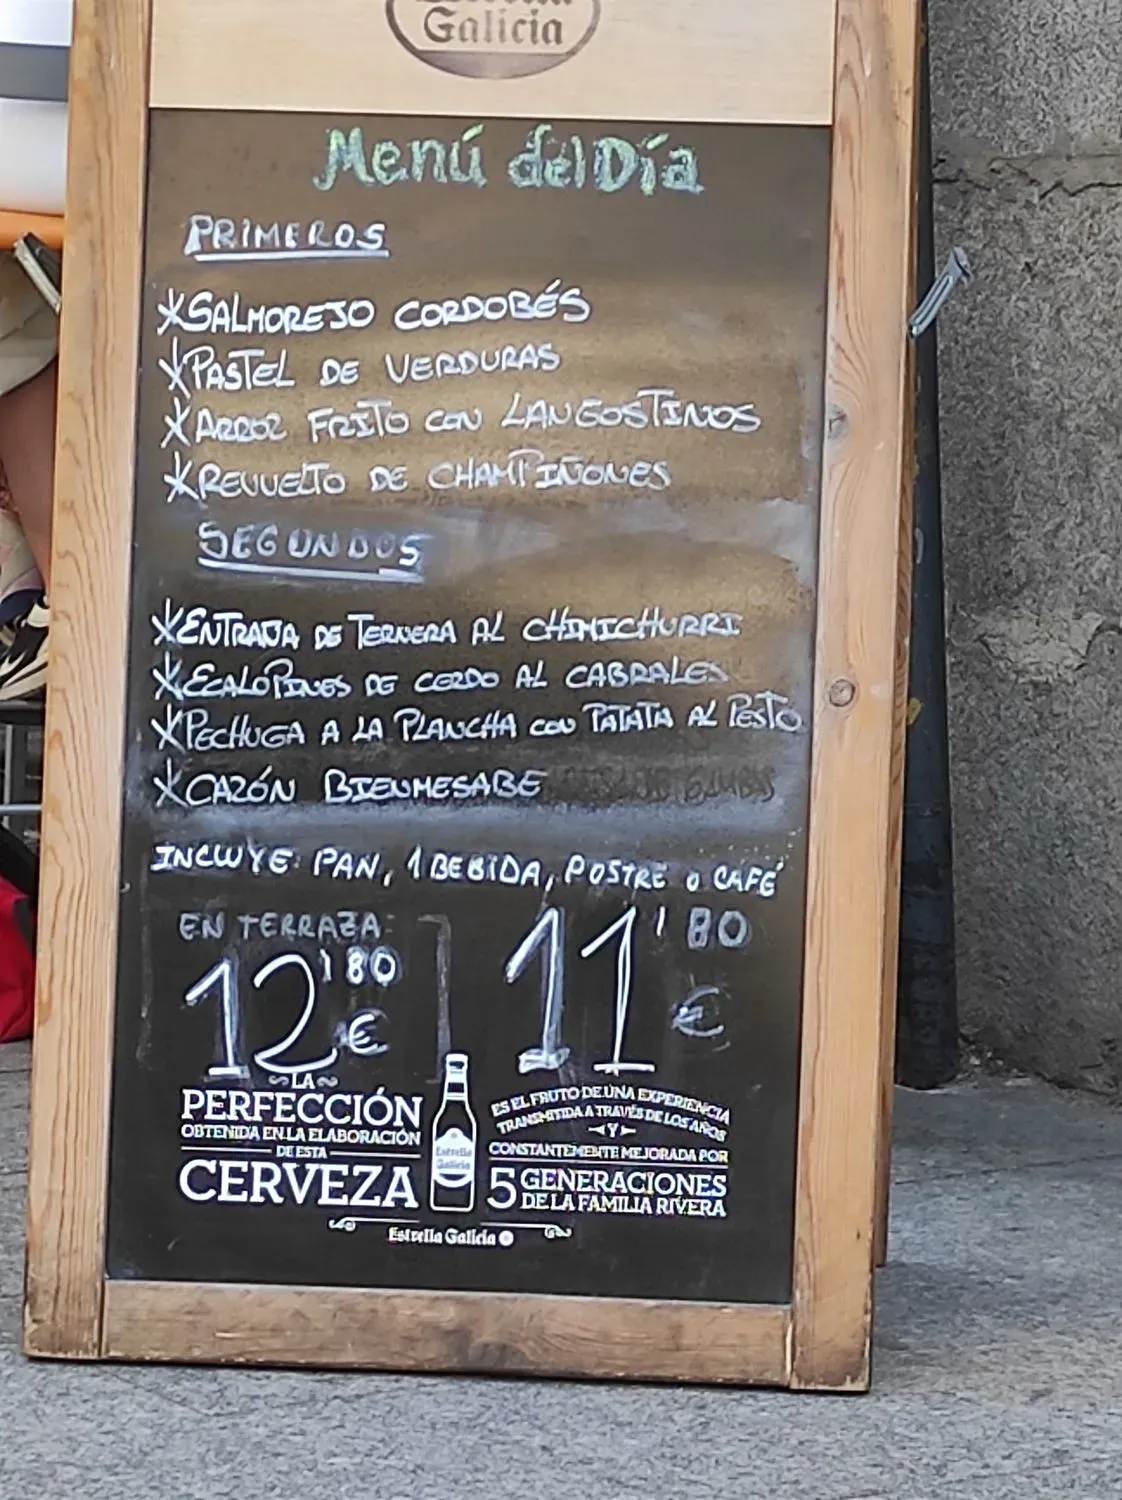 Galicia
Menú del Día
PRIMEROS
*SALMOREJO CORDOBÉS
*PASTEL DE VERDURAS
*ARROZ FRITO CON LANGOSTINOS
*REVUELTO DE CHAMPIÑONES
SEGUNDOS
*ENTRAÑA DE TERNERA AL CHIMICHURRI
*ECALÓPINES DE CERDO AL CABRALES
*PECHUGA A LA PLANCHA CON PATATA AL PESTO
*CAZÓN BIENMESABE
INCLUYE: PAN, 1 BEBIDA, POSTRE O CAFÉ
EN TERRAZA:
12'80 €
11'80 €
LA
PERFECCIÓN
OBTENIDA EN LA ELABORACIÓN
DE ESTA
CERVEZA
Estrella
Galicia
ES EL FRUTO DE UNA EXPERIENCIA
TRANSMITIDA A TRAVÉS DE LOS AÑOS
Y
CONSTANTEMENTE MEJORADA POR
5 GENERACIONES
DE LA FAMILIA RIVERA
Estrella Galicia